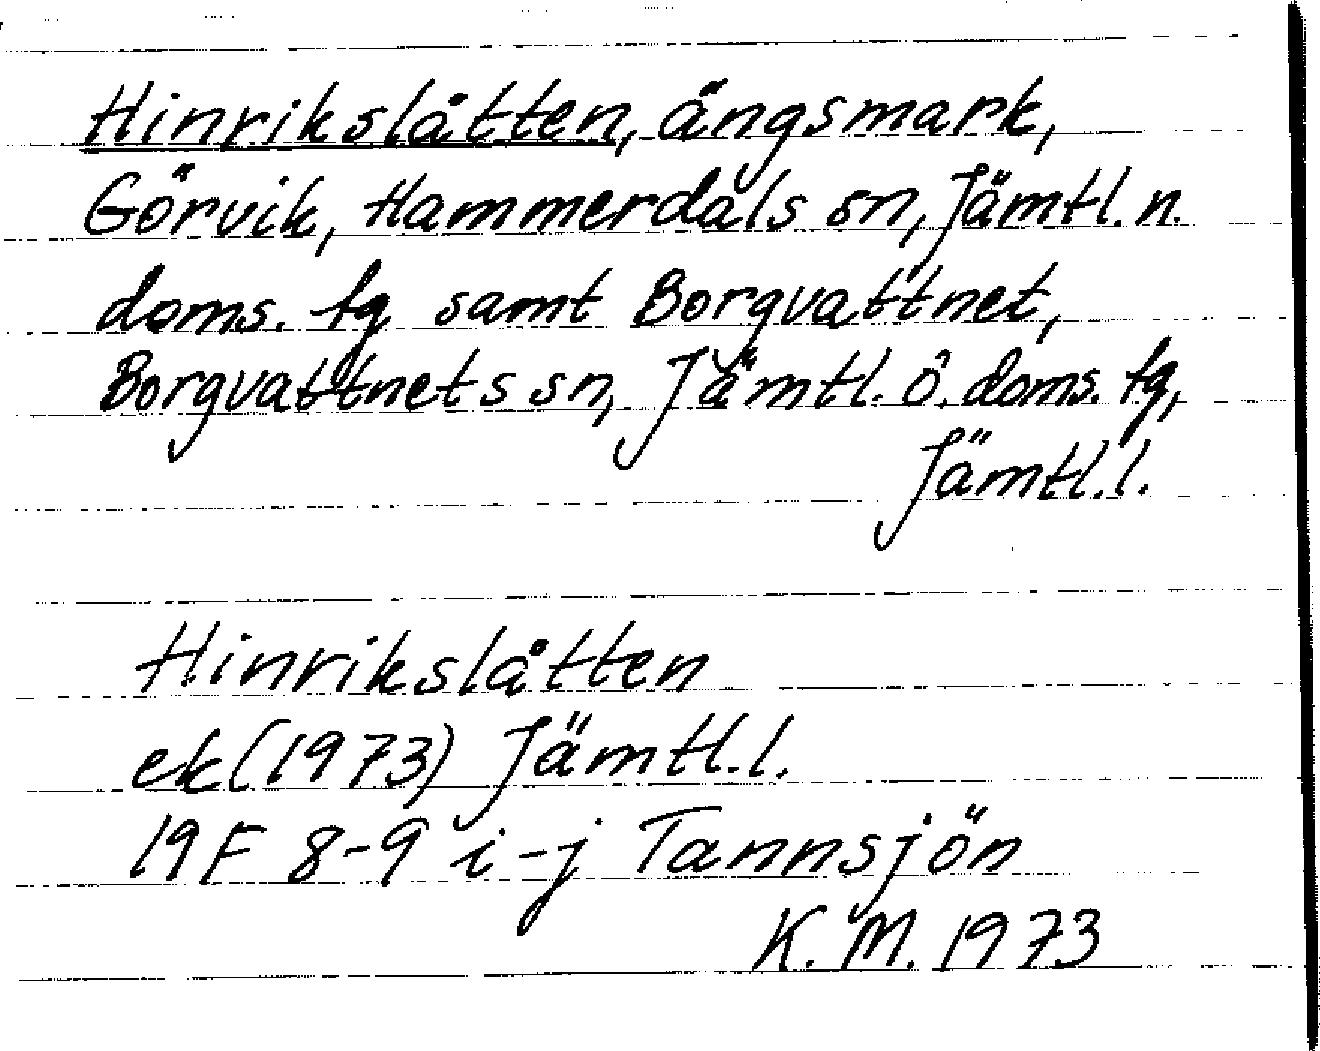 Hinrikslåtten, ängsmark,
Görvik, Hammerdals sn, Jämtl. n.
doms. tg samt Borgvattnet,
Borgvattnets sn, Jämtl. ö. doms. tg,
Jämtl. l.
Hinrikslåtten
ek (1973) Jämtl. l.
19F 8-9 i-j Tannsjön
K. M. 1973